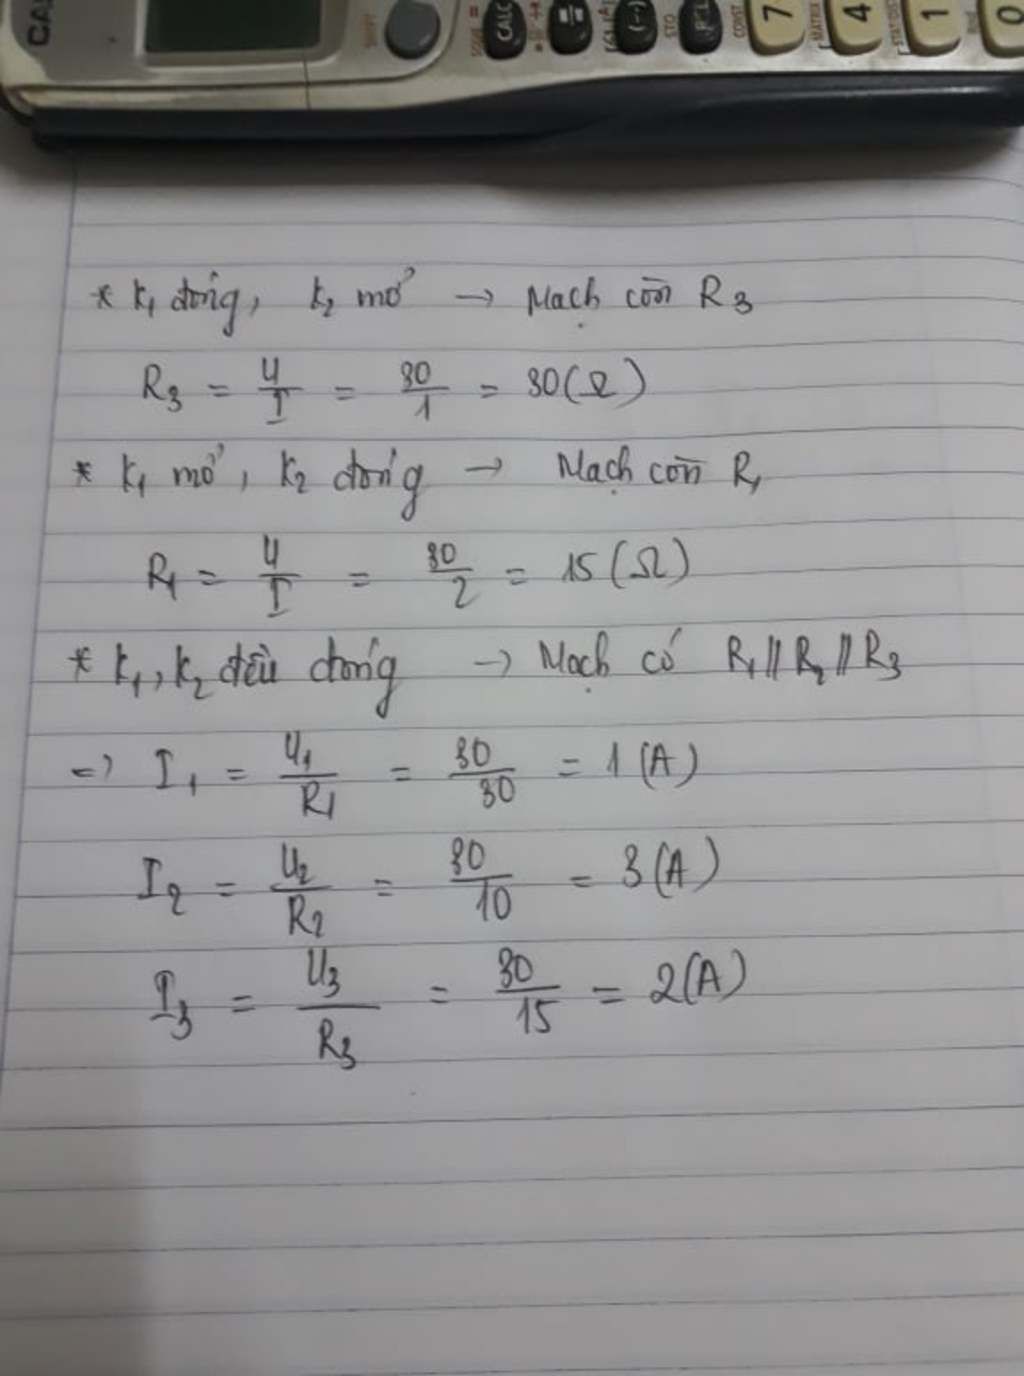 CA
SHIFT
SOLVE =
CALC
(-)
STO
CONST
7
MATRIX
4
1
0
* K₁ đóng, K₂ mở → Mạch còn R₃
R₃ = U/I = 30/1 = 30(Ω)
* K₁ mở, K₂ đóng → Mạch còn R₁
R₁ = U/I = 30/2 = 15(Ω)
* K₁, K₂ đều đóng → Mạch có R₁ // R₂ // R₃
=> I₁ = U₁/R₁ = 30/30 = 1(A)
I₂ = U₂/R₂ = 30/10 = 3(A)
I₃ = U₃/R₃ = 30/15 = 2(A)